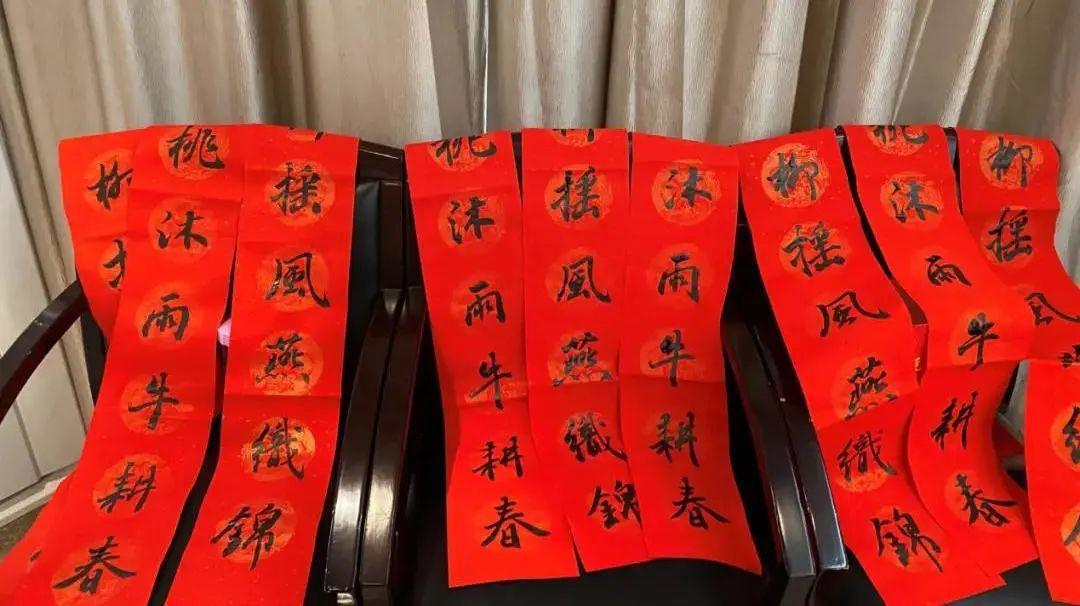 柳
桃沐雨牛耕春
搖風燕織錦
桃沐雨牛耕春
搖風燕織錦
沐雨牛耕春
柳搖風燕織錦
桃沐雨牛耕春
柳搖風